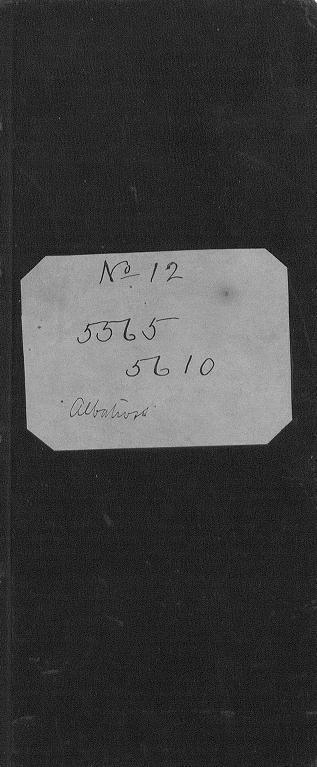 No 12
5565
5610
"Albatross"